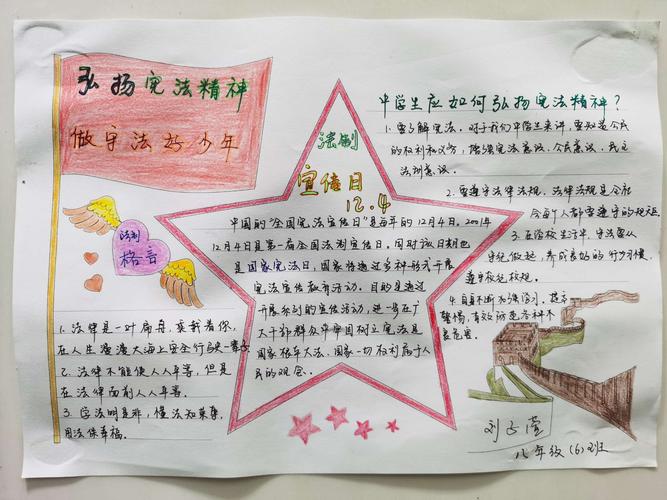 弘扬宪法精神
做守法好少年
法制
格言
1.法律是一叶扁舟,承载着你,
在人生漫漫大海上安全行驶一辈子
2.法律不能使人人平等,但是
在法律面前人人平等。
3.学法明是非,懂法知荣辱,
用法保幸福。
法制
宣传日
12.4
中国的“全国宪法宣传日”是每年的12月4日。2001年
12月4日是第一届全国法制宣传日。同时该日期也
是国家宪法日,国家将通过多种形式开展
宪法宣传教育活动。目的是通过
开展系列的宣传活动,进一步在广
大干部群众中牢固树立宪法是
国家根本大法、国家一切权利属于人
民的观念。
中学生应如何弘扬宪法精神?
1.要了解宪法。对于我们中学生来讲,要知道公民
的权利和义务,增强宪法意识、公民意识、民主
法制意识。
2.要遵守法律法规,法律法规是全社
会每个人都要遵守的规范
3.在学校生活中,守法要从
守纪做起,养成良好的行为习惯,
遵守校纪校规。
4.自身不断加强学习,提高
警惕,有效防范各种不
良危害。
刘子萱
八年级(6)班